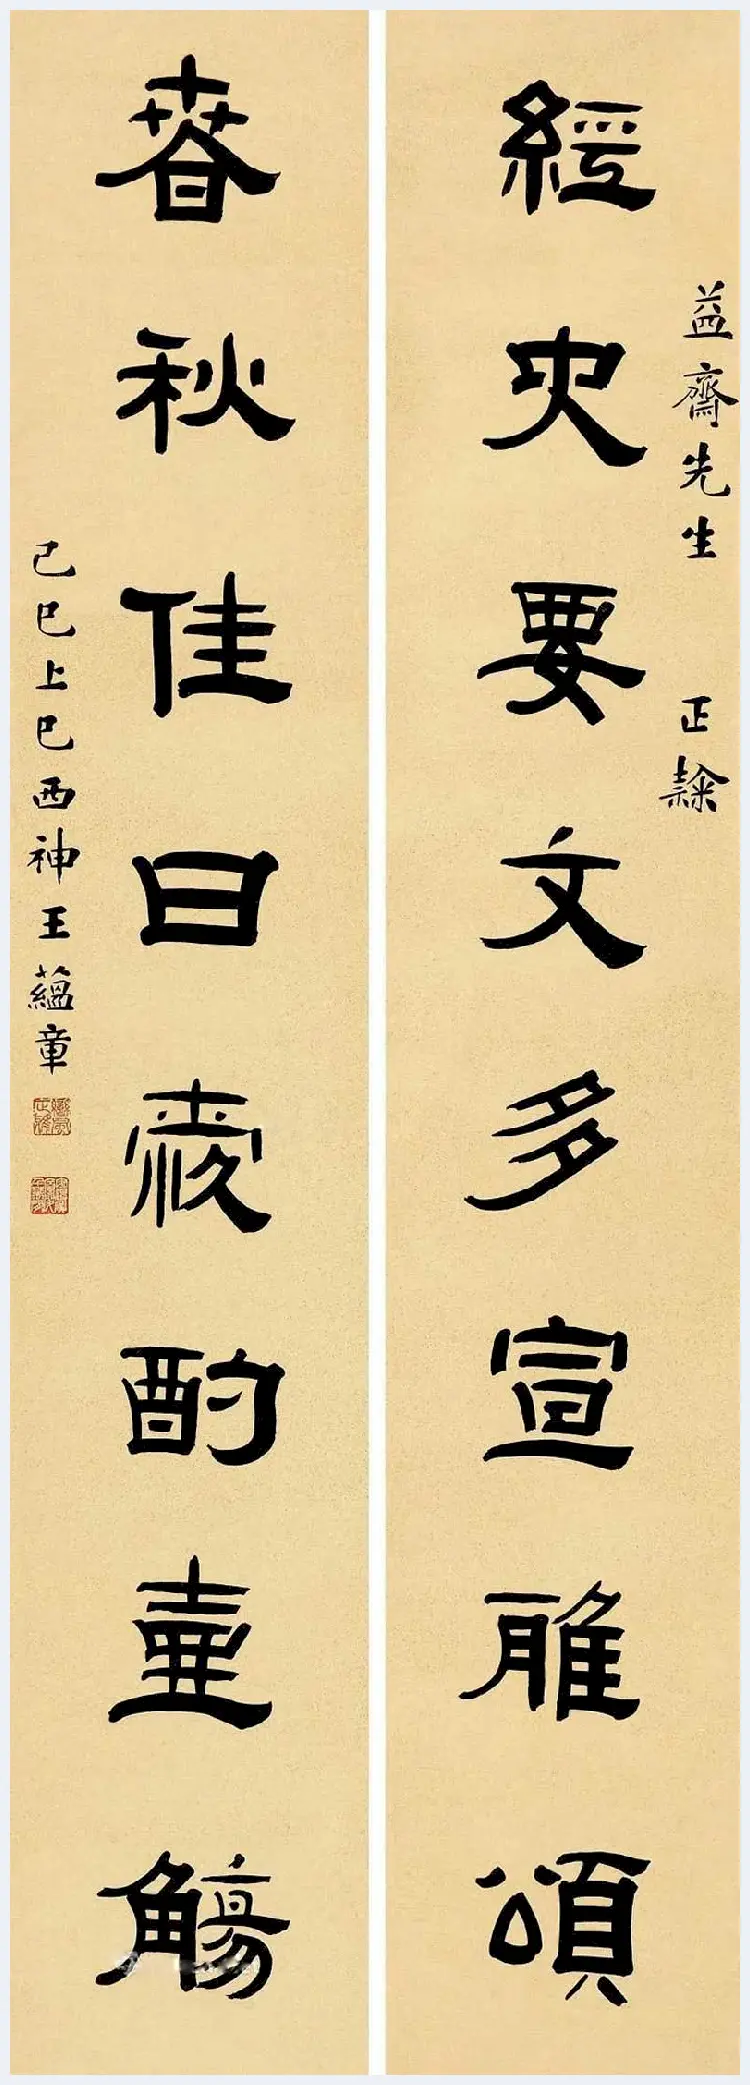 益齋先生 正隸
經史要文多宣雅頌
春秋佳日愛酌壺觴
己巳上巳西神王蘊章